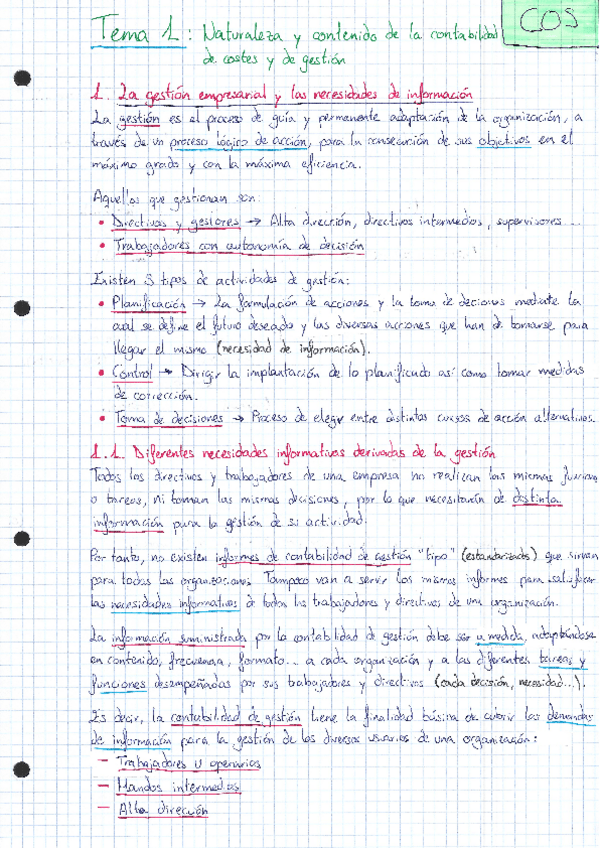 Tema 1: Naturaleza y contenido de la contabilidad
COS
de costes y de gestión
1. La gestión empresarial y las necesidades de información
La gestión es el proceso de guía y permanente adaptación de la organización, a
través de un proceso lógico de acción, para la consecución de sus objetivos en el
máximo grado y con la máxima eficiencia.
Aquellos que gestionan son:
• Directivos y gestores → Alta dirección, directivos intermedios, supervisores...
• Trabajadores con autonomía de decisión
Existen 3 tipos de actividades de gestión:
• Planificación → La formulación de acciones y la toma de deciones mediate la
cual se define el futuro deseado y las diversas acciones que han de tomarse para
llegar al mismo (necesidad de información).
• Control → Dirigir la implantación de lo planificado así como tomar medidas
de corrección.
• Toma de decisiones → Proceso de elegir entre distintos cursos de acción alternativos.
1.1. Diferentes necesidades informativas derivadas de la gestión
Todos los directivos y trabajadores de una empresa no realizan las mismas funciones
o tareas, ni toman las mismas decisiones, por lo que necesitarán de distinta
información para la gestión de su actividad.
Por tanto, no existen informes de contabilidad de gestión "tipo" (estandarizados) que sirvan
para todas las organizaciones. Tampoco van a servir los mismos informes para satisfacer
las necesidades informativas de todos los trabajadores y directivos de una organización.
La información suministrada por la contabilidad de gestión debe ser a medida, adaptándose
en contenido, frecuencia, formato... a cada organización y a las diferentes tareas y
funciones desempeñadas por sus trabajadores y directivos (cada decisión, necesidad...).
Es decir, la contabilidad de gestión tiene la finalidad básica de cubrir las demandas
de información para la gestión de los diversos usuarios de una organización:
– Trabajadores u operarios
– Mandos intermedios
– Alta dirección